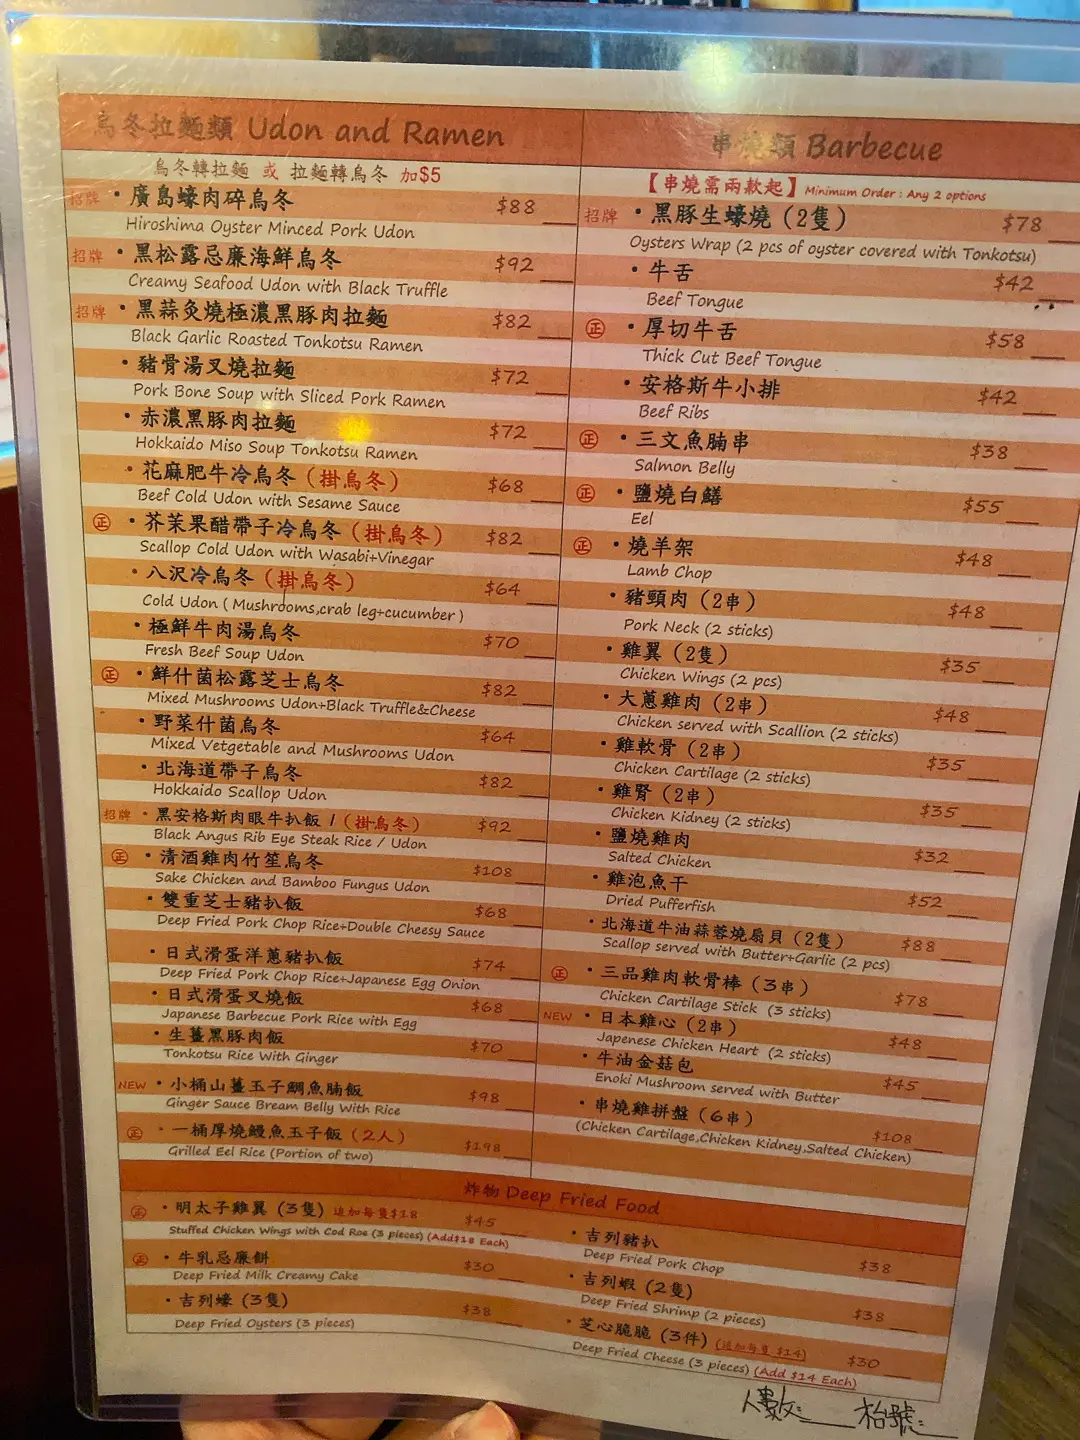 烏冬拉麵類 Udon and Ramen
烏冬轉拉麵 或 拉麵轉烏冬 加$5
招牌 ・廣島蠔肉碎烏冬 $88
Hiroshima Oyster Minced Pork Udon
招牌 ・黑松露忌廉海鮮烏冬 $92
Creamy Seafood Udon with Black Truffle
招牌 ・黑蒜灸燒極濃黑豚肉拉麵 $82
Black Garlic Roasted Tonkotsu Ramen
・豬骨湯叉燒拉麵 $72
Pork Bone Soup with Sliced Pork Ramen
・赤濃黑豚肉拉麵 $72
Hokkaido Miso Soup Tonkotsu Ramen
・花麻肥牛冷烏冬（掛烏冬） $68
Beef Cold Udon with Sesame Sauce
正 ・芥茉果醋帶子冷烏冬（掛烏冬） $82
Scallop Cold Udon with Wasabi+Vinegar
・八沢冷烏冬（掛烏冬） $64
Cold Udon ( Mushrooms,crab leg+cucumber )
・極鮮牛肉湯烏冬 $70
Fresh Beef Soup Udon
正 ・鮮什菌松露芝士烏冬 $82
Mixed Mushrooms Udon+Black Truffle&Cheese
・野菜什菌烏冬 $64
Mixed Vetgetable and Mushrooms Udon
・北海道帶子烏冬 $82
Hokkaido Scallop Udon
招牌 ・黑安格斯肉眼牛扒飯 /（掛烏冬） $92
Black Angus Rib Eye Steak Rice / Udon
正 ・清酒雞肉竹笙烏冬 $108
Sake Chicken and Bamboo Fungus Udon
・雙重芝士豬扒飯 $68
Deep Fried Pork Chop Rice+Double Cheesy Sauce
・日式滑蛋洋蔥豬扒飯 $74
Deep Fried Pork Chop Rice+Japanese Egg Onion
・日式滑蛋叉燒飯 $68
Japanese Barbecue Pork Rice with Egg
・生薑黑豚肉飯 $70
Tonkotsu Rice With Ginger
NEW ・小桶山薑玉子鯛魚腩飯 $98
Ginger Sauce Bream Belly With Rice
正 ・一桶厚燒鰻魚玉子飯（2人） $198
Grilled Eel Rice (Portion of two)
串燒類 Barbecue
【串燒需兩款起】Minimum Order : Any 2 options
招牌 ・黑豚生蠔燒（2隻） $78
Oysters Wrap (2 pcs of oyster covered with Tonkotsu)
・牛舌 $42
Beef Tongue
正 ・厚切牛舌 $58
Thick Cut Beef Tongue
・安格斯牛小排 $42
Beef Ribs
正 ・三文魚腩串 $38
Salmon Belly
正 ・鹽燒白鱔 $55
Eel
正 ・燒羊架 $48
Lamb Chop
・豬頸肉（2串） $48
Pork Neck (2 sticks)
・雞翼（2隻） $35
Chicken Wings (2 pcs)
・大蔥雞肉（2串） $48
Chicken served with Scallion (2 sticks)
・雞軟骨（2串） $35
Chicken Cartilage (2 sticks)
・雞腎（2串） $35
Chicken Kidney (2 sticks)
・鹽燒雞肉 $32
Salted Chicken
・雞泡魚干 $52
Dried Pufferfish
・北海道牛油蒜蓉燒扇貝（2隻） $88
Scallop served with Butter+Garlic (2 pcs)
正 ・三品雞肉軟骨棒（3串） $78
Chicken Cartilage Stick (3 sticks)
NEW ・日本雞心（2串） $48
Japenese Chicken Heart (2 sticks)
・牛油金菇包 $45
Enoki Mushroom served with Butter
・串燒雞拼盤（6串） $108
(Chicken Cartilage,Chicken Kidney,Salted Chicken)
炸物 Deep Fried Food
正 ・明太子雞翼（3隻）追加每隻$18 $45
Stuffed Chicken Wings with Cod Roe (3 pieces) (Add$18 Each)
正 ・牛乳忌廉餅 $30
Deep Fried Milk Creamy Cake
・吉列蠔（3隻） $38
Deep Fried Oysters (3 pieces)
・吉列豬扒 $38
Deep Fried Pork Chop
・吉列蝦（2隻） $38
Deep Fried Shrimp (2 pieces)
・芝心脆脆（3件）(追加每隻 $14) $30
Deep Fried Cheese (3 pieces) (Add $14 Each)
人數: 枱號: